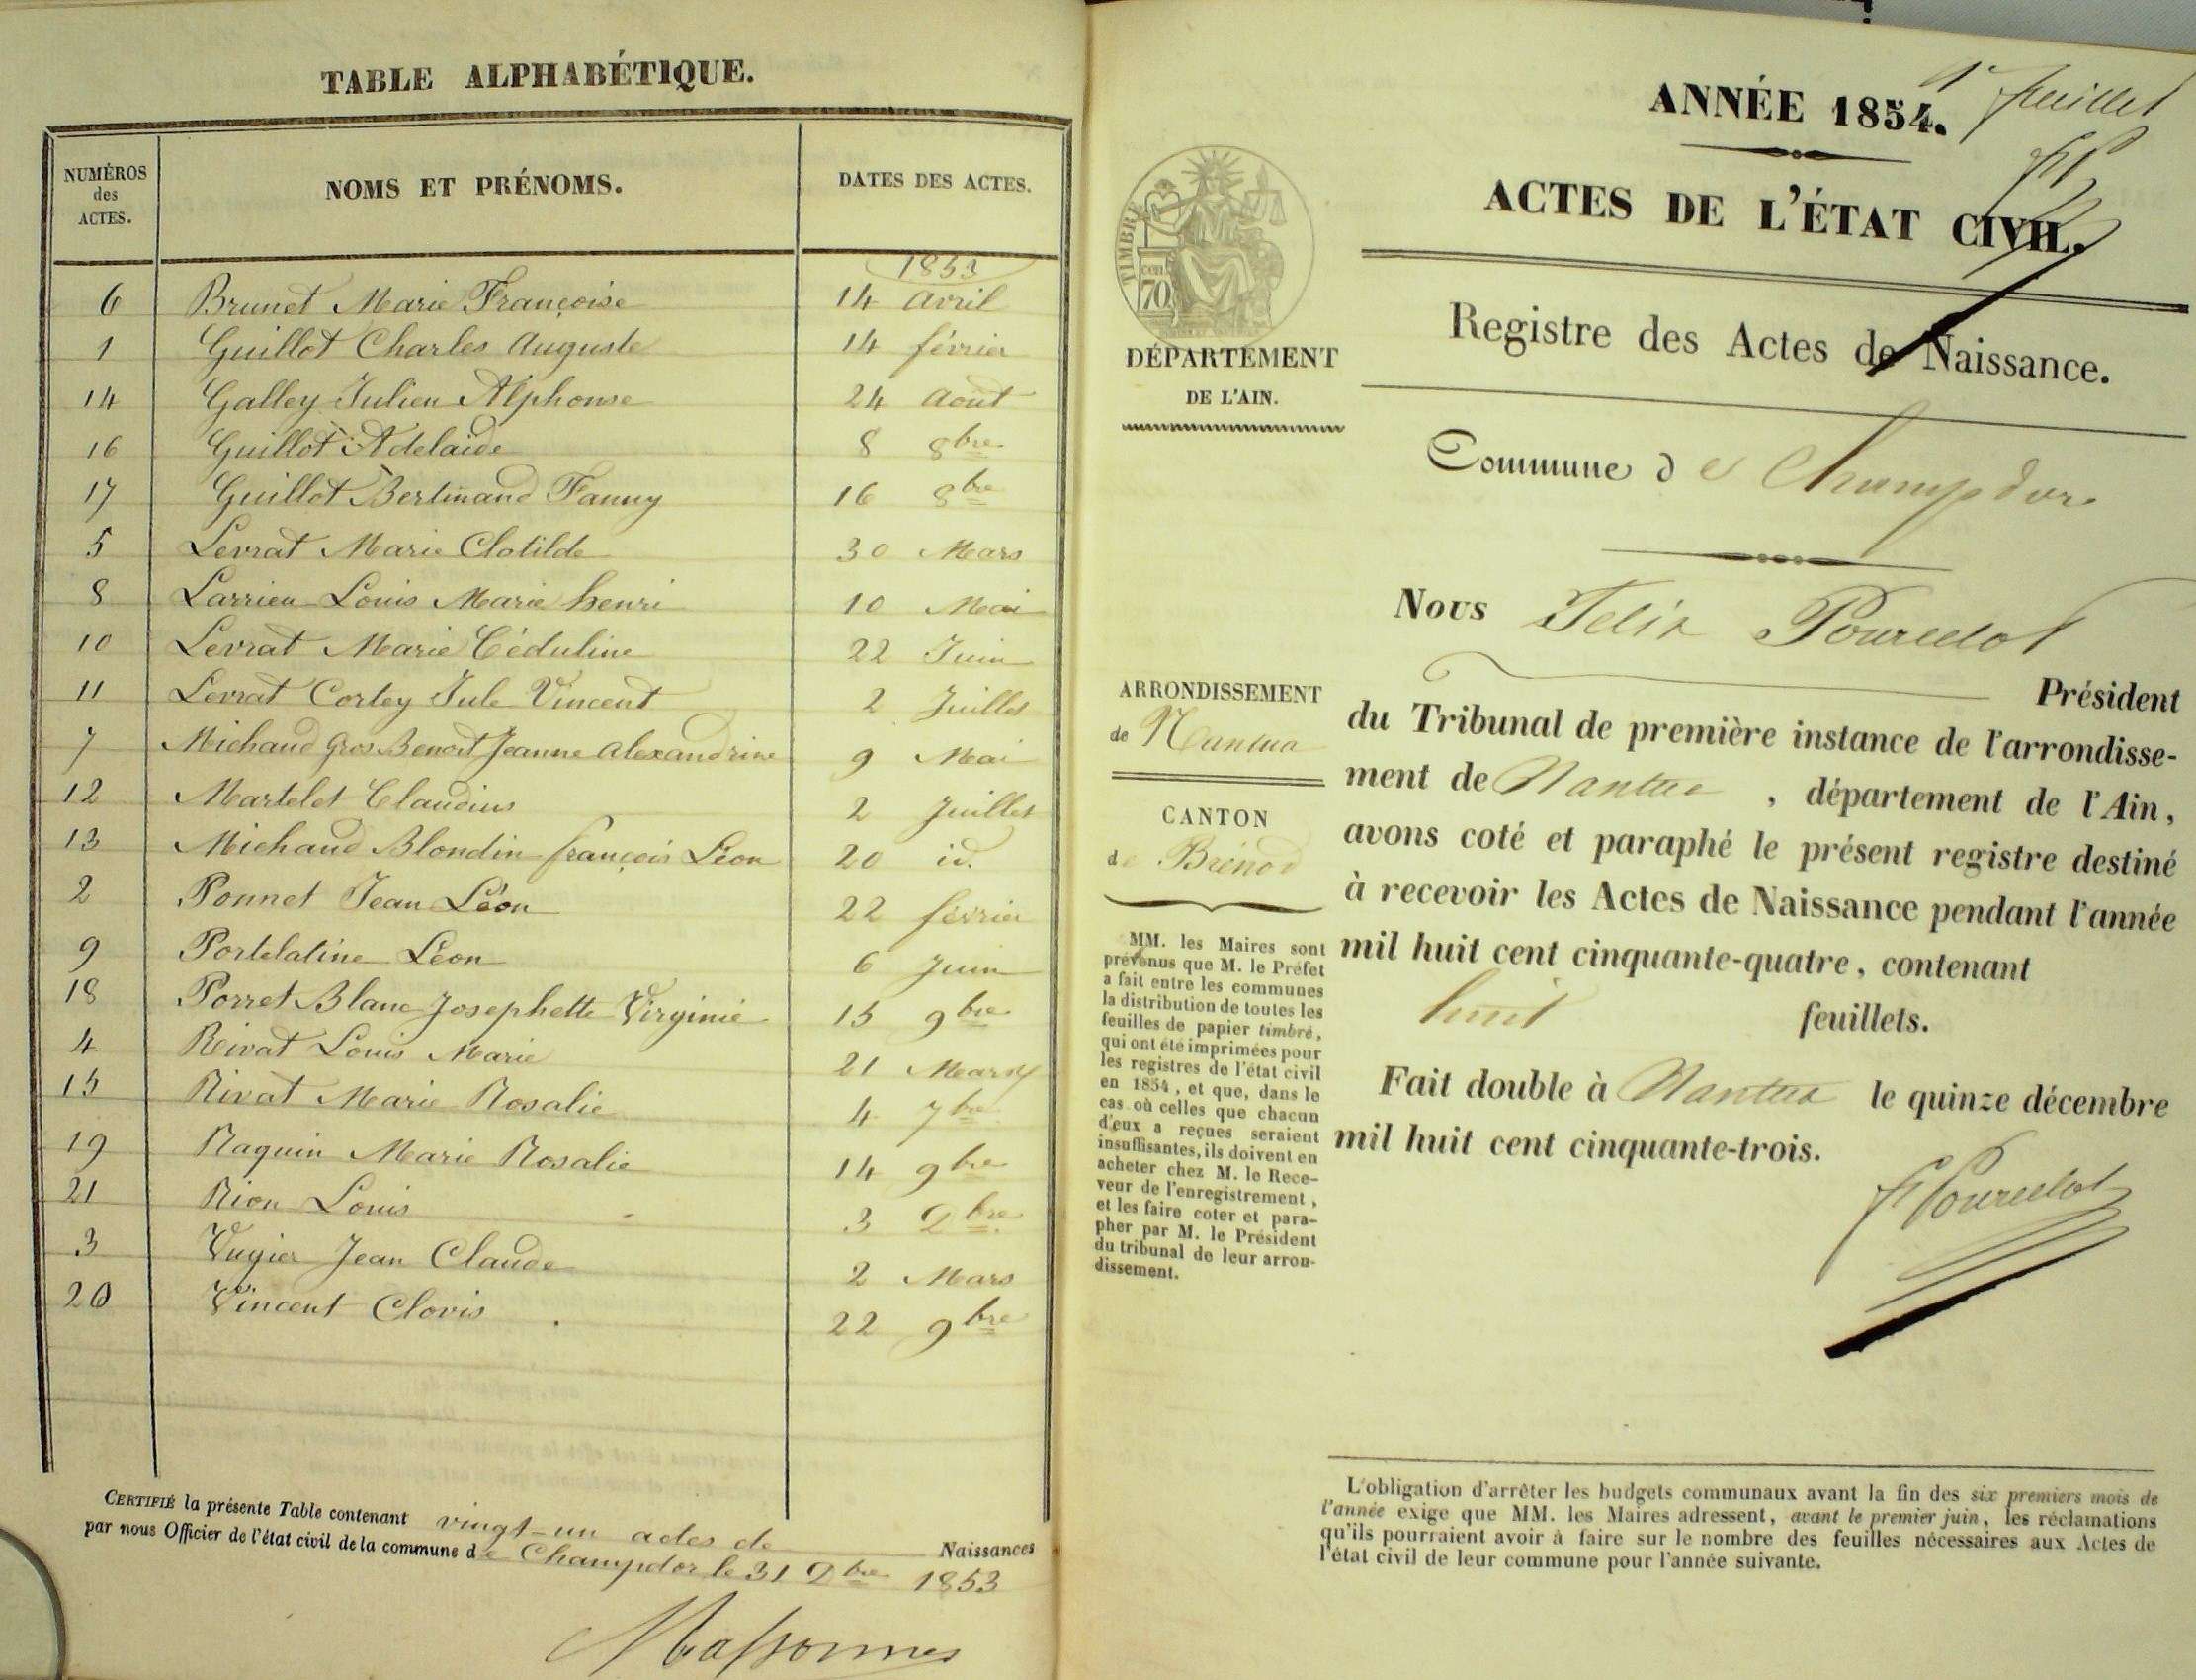 TABLE ALPHABÉTIQUE.
NUMÉROS des ACTES. NOMS ET PRÉNOMS. DATES DES ACTES.
1853
6 Brunet Marie Françoise 14 avril
1 Guillot Charles Auguste 14 février
14 Galley Julien Alphonse 24 Aout
16 Guillot Adelaïde 8 8bre
17 Guillot Bertinand Fanny 16 8bre
5 Levrat Marie Clotilde 30 Mars
8 Larrieu Louis Marie henri 10 Mai
10 Levrat Marie Céduline 22 Juin
11 Levrat Cortey Jule Vincent 2 Juillet
7 Michaud Gros Benoit Jeanne alexandrine 9 Mai
12 Martelet Claudius 2 Juillet
13 Michaud Blondin françois Léon 20 id.
2 Ponnet Jean Léon 22 février
9 Portelatine Léon 6 Juin
18 Porret Blanc Josephette Virginie 15 9bre
4 Rivat Louis Marie 21 Mars
15 Rivat Marie Rosalie 4 7bre
19 Raquin Marie Rosalie 14 9bre
21 Rion Louis 3 Xbre
3 Vugier Jean Claude 2 Mars
20 Vincent Clovis 22 9bre
CERTIFIÉ la présente Table contenant vingt-un actes de Naissances
par nous Officier de l'état civil de la commune de Champdor le 31 Xbre 1853
Massonnes
1er feuillet
ANNÉE 1854.
ACTES DE L'ÉTAT CIVIL.
TIMBRE
cen. 70
DÉPARTEMENT
DE L'AIN.
Registre des Actes de Naissance.
Commune de Champdor
Nous Felix Pourcelot
Président
du Tribunal de première instance de l'arrondisse-
ment de Nantua, département de l'Ain,
avons coté et paraphé le présent registre destiné
à recevoir les Actes de Naissance pendant l'année
mil huit cent cinquante-quatre, contenant
huit feuillets.
Fait double à Nantua le quinze décembre
mil huit cent cinquante-trois.
F Pourcelot
ARRONDISSEMENT
de Nantua
CANTON
de Brénod
MM. les Maires sont
prévenus que M. le Préfet
a fait entre les communes
la distribution de toutes les
feuilles de papier timbré,
qui ont été imprimées pour
les registres de l'état civil
en 1854, et que, dans le
cas où celles que chacun
d'eux a reçues seraient
insuffisantes, ils doivent en
acheter chez M. le Rece-
veur de l'enregistrement,
et les faire coter et para-
pher par M. le Président
du tribunal de leur arron-
dissement.
L'obligation d'arrêter les budgets communaux avant la fin des six premiers mois de
l'année exige que MM. les Maires adressent, avant le premier juin, les réclamations
qu'ils pourraient avoir à faire sur le nombre des feuilles nécessaires aux Actes de
l'état civil de leur commune pour l'année suivante.